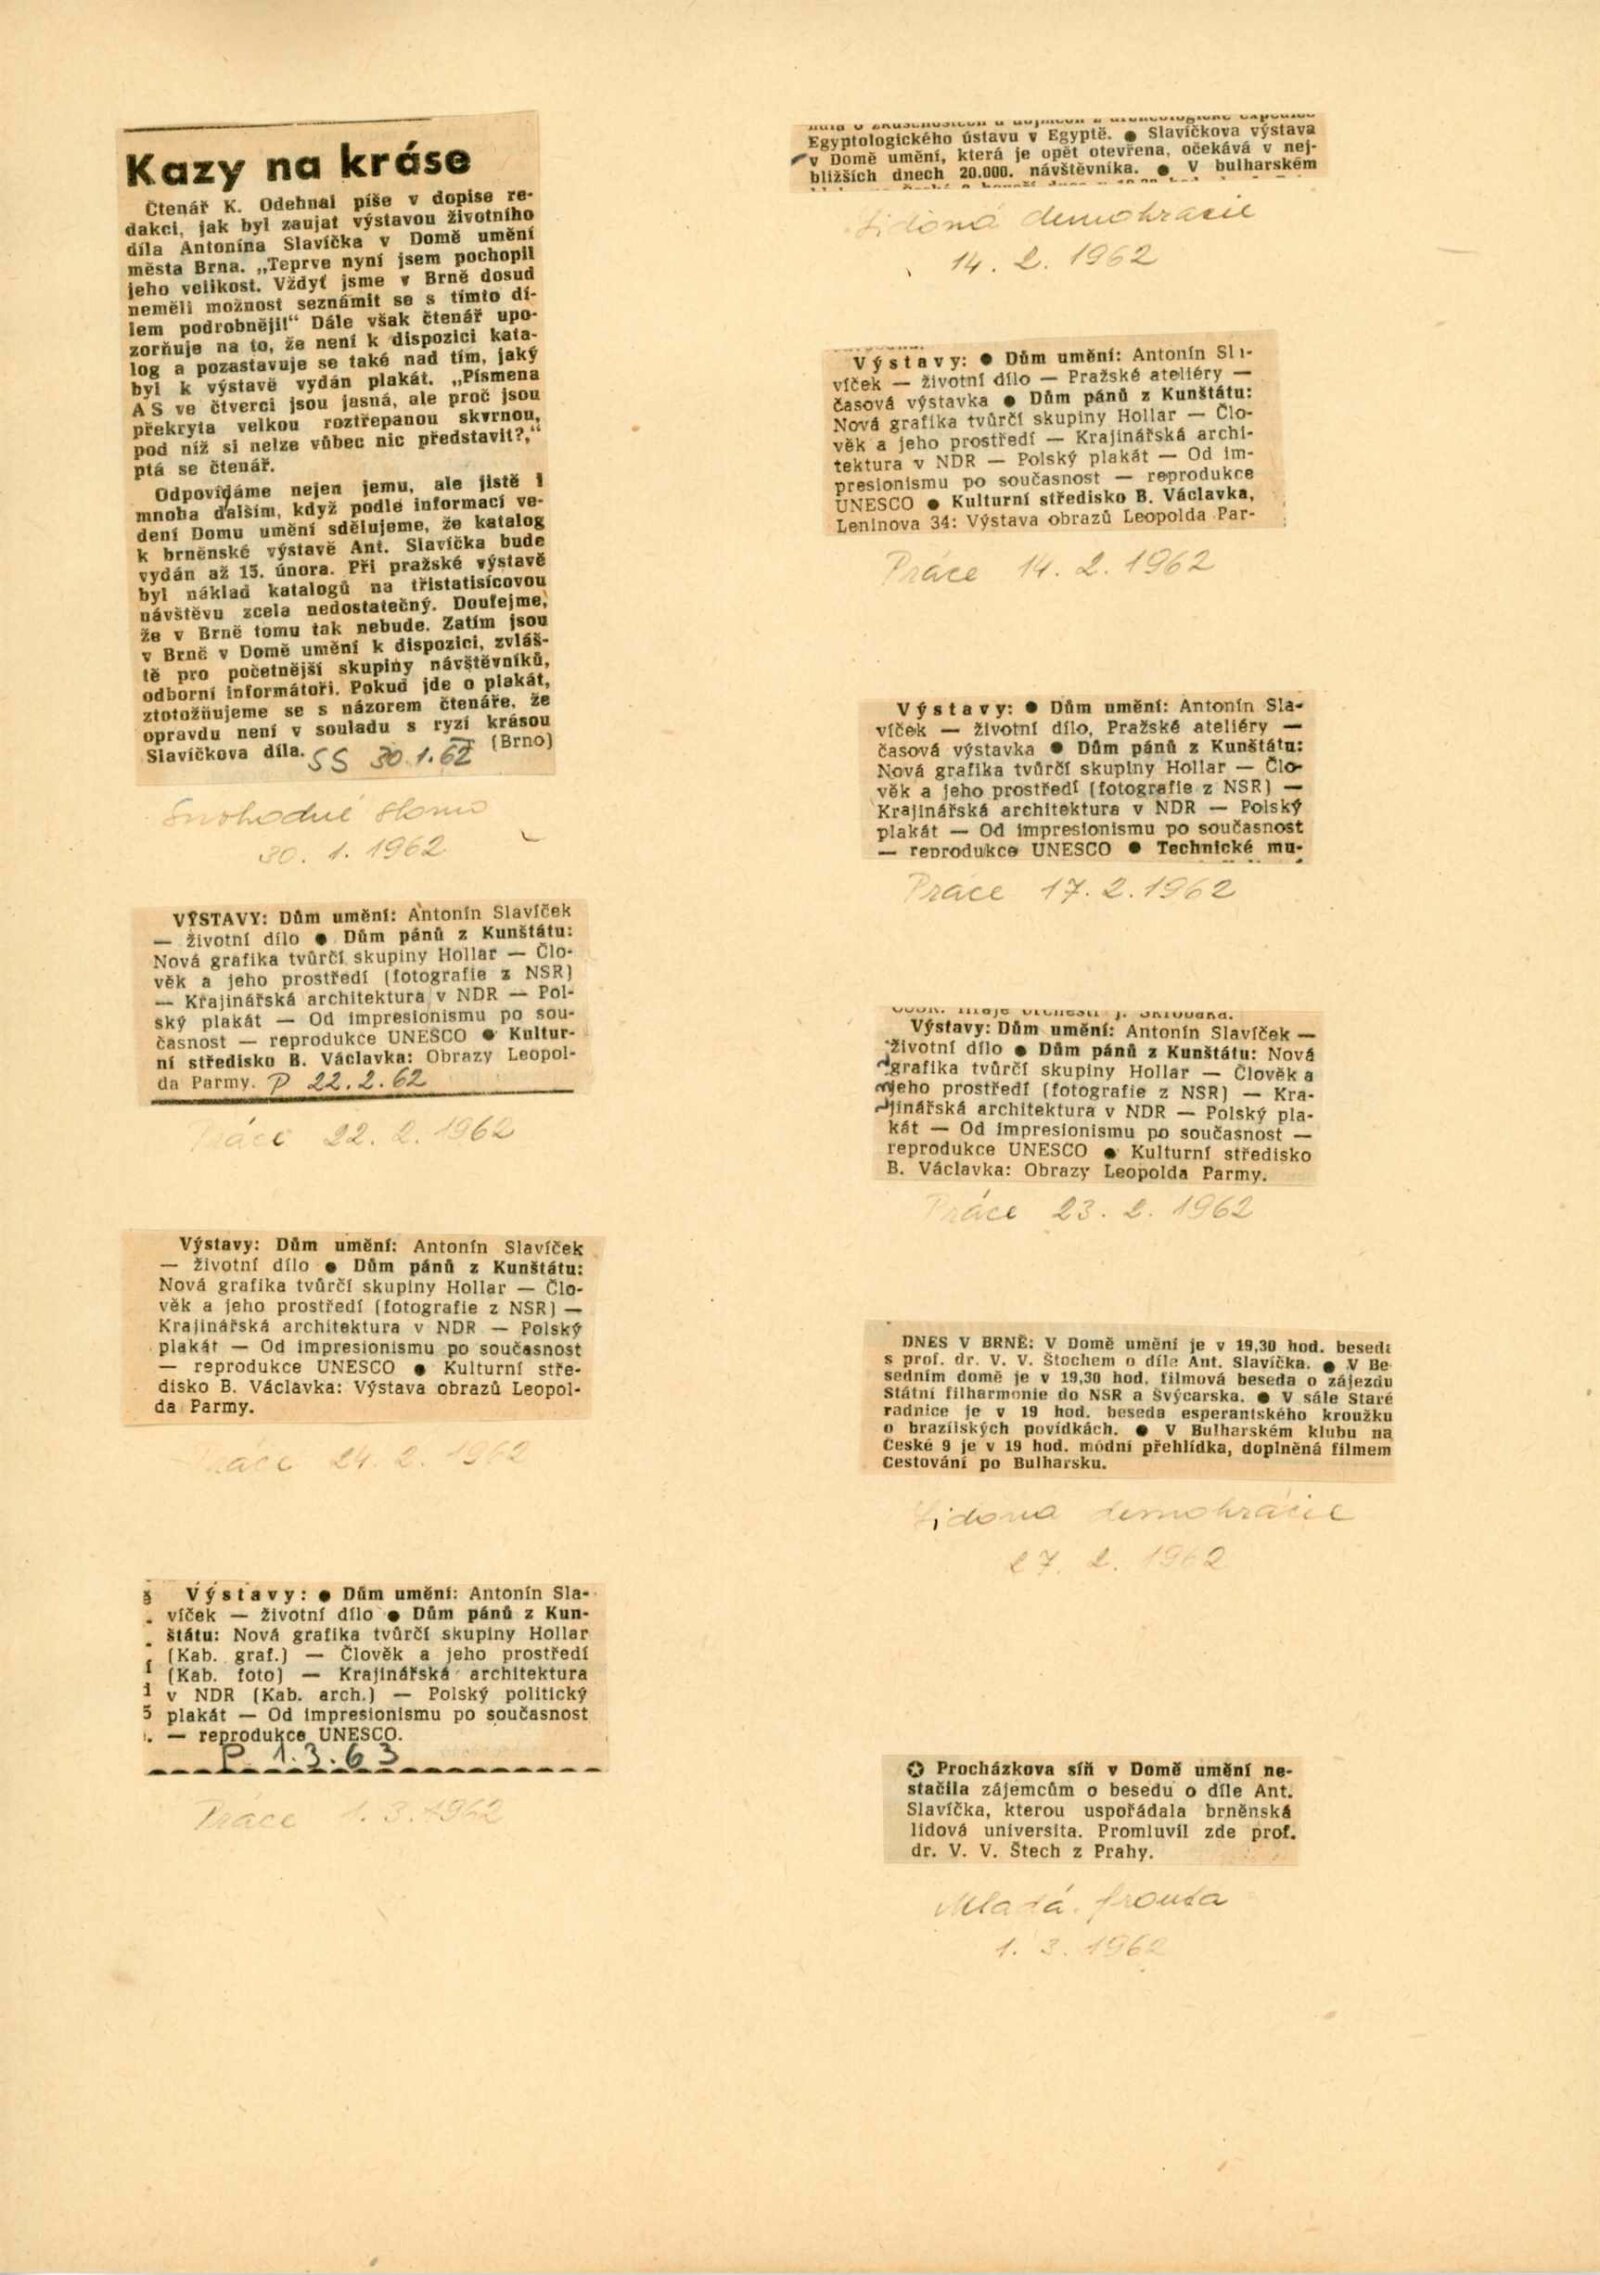 Kazy na kráse
Čtenář K. Odehnal píše v dopise re-
dakci, jak byl zaujat výstavou životního
díla Antonína Slavíčka v Domě umění
města Brna. „Teprve nyní jsem pochopil
jeho velikost. Vždyť jsme v Brně dosud
neměli možnost seznámit se s tímto dí-
lem podrobněji!“ Dále však čtenář upo-
zorňuje na to, že není k dispozici kata-
log a pozastavuje se také nad tím, jaký
byl k výstavě vydán plakát. „Písmena
A S ve čtverci jsou jasná, ale proč jsou
překryta velkou roztřepanou skvrnou,
pod níž si nelze vůbec nic představit?,“
ptá se čtenář.
Odpovídáme nejen jemu, ale jistě i
mnoha dalším, když podle informací ve-
dení Domu umění sdělujeme, že katalog
k brněnské výstavě Ant. Slavíčka bude
vydán až 15. února. Při pražské výstavě
byl náklad katalogů na třistatisícovou
návštěvu zcela nedostatečný. Doufejme,
že v Brně tomu tak nebude. Zatím jsou
v Brně v Domě umění k dispozici, zvláš-
tě pro početnější skupiny návštěvníků,
odborní informátoři. Pokud jde o plakát,
ztotožňujeme se s názorem čtenáře, že
opravdu není v souladu s ryzí krásou
Slavíčkova díla. SS 30.1.62 (Brno)
Svobodné slovo
30. 1. 1962
VÝSTAVY: Dům umění: Antonín Slavíček
— životní dílo ● Dům pánů z Kunštátu:
Nová grafika tvůrčí skupiny Hollar — Člo-
věk a jeho prostředí (fotografie z NSR)
— Krajinářská architektura v NDR — Pol-
ský plakát — Od impresionismu po sou-
časnost — reprodukce UNESCO ● Kultur-
ní středisko B. Václavka: Obrazy Leopol-
da Parmy. P 22.2.62
Práce 22. 2. 1962
Výstavy: Dům umění: Antonín Slavíček
— životní dílo ● Dům pánů z Kunštátu:
Nová grafika tvůrčí skupiny Hollar — Člo-
věk a jeho prostředí (fotografie z NSR) —
Krajinářská architektura v NDR — Polský
plakát — Od impresionismu po současnost
— reprodukce UNESCO ● Kulturní stře-
disko B. Václavka: Výstava obrazů Leopol-
da Parmy.
Práce 24. 2. 1962
Výstavy: ● Dům umění: Antonín Sla-
víček — životní dílo ● Dům pánů z Kun-
štátu: Nová grafika tvůrčí skupiny Hollar
(Kab. graf.) — Člověk a jeho prostředí
(Kab. foto) — Krajinářská architektura
v NDR (Kab. arch.) — Polský politický
plakát — Od impresionismu po současnost
— reprodukce UNESCO.
P. 1.3.63
Práce 1. 3. 1962
Egyptologického ústavu v Egyptě. ● Slavíčkova výstava
v Domě umění, která je opět otevřena, očekává v nej-
bližších dnech 20.000. návštěvníka. ● V bulharském
Lidová demokracie
14. 2. 1962
Výstavy: ● Dům umění: Antonín Sla-
víček — životní dílo — Pražské ateliéry —
časová výstavka ● Dům pánů z Kunštátu:
Nová grafika tvůrčí skupiny Hollar — Člo-
věk a jeho prostředí — Krajinářská archi-
tektura v NDR — Polský plakát — Od im-
presionismu po současnost — reprodukce
UNESCO ● Kulturní středisko B. Václavka,
Leninova 34: Výstava obrazů Leopolda Par-
Práce 14. 2. 1962
Výstavy: ● Dům umění: Antonín Sla-
víček — životní dílo, Pražské ateliéry —
časová výstavka ● Dům pánů z Kunštátu:
Nová grafika tvůrčí skupiny Hollar — Člo-
věk a jeho prostředí (fotografie z NSR) —
Krajinářská architektura v NDR — Polský
plakát — Od impresionismu po současnost
— reprodukce UNESCO ● Technické mu-
Práce 17. 2. 1962
Výstavy: Dům umění: Antonín Slavíček —
životní dílo ● Dům pánů z Kunštátu: Nová
grafika tvůrčí skupiny Hollar — Člověk a
jeho prostředí (fotografie z NSR) — Kra-
jinářská architektura v NDR — Polský pla-
kát — Od impresionismu po současnost —
reprodukce UNESCO ● Kulturní středisko
B. Václavka: Obrazy Leopolda Parmy.
Práce 23. 2. 1962
DNES V BRNĚ: V Domě umění je v 19,30 hod. beseda
s prof. dr. V. V. Štochem o díle Ant. Slavíčka. ● V Be
sedním domě je v 19,30 hod. filmová beseda o zájezdu
Státní filharmonie do NSR a Švýcarska. ● V sále Staré
radnice je v 19 hod. beseda esperantského kroužku
o brazilských povídkách. ● V Bulharském klubu na
České 9 je v 19 hod. módní přehlídka, doplněná filmem
Cestování po Bulharsku.
Lidová demokracie
27. 2. 1962
✪ Procházkova síň v Domě umění ne-
stačila zájemcům o besedu o díle Ant.
Slavíčka, kterou uspořádala brněnská
lidová universita. Promluvil zde prof.
dr. V. V. Štech z Prahy.
Mladá fronta
1. 3. 1962